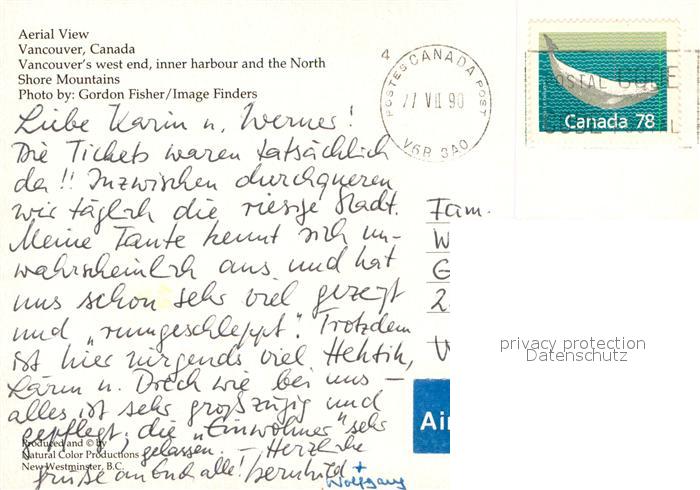 Aerial View
Vancouver, Canada
Vancouver's west end, inner harbour and the North
Shore Mountains
Photo by: Gordon Fisher/Image Finders
4
POSTES CANADA POST
VII 90
V6B 3A0
POSTAL CODE
Canada 78
Liebe Karin u. Werner!
Die Tickets waren tatsächlich
da!! Inzwischen durchqueren
wir täglich die riesige Stadt.
Meine Tante kennt sich un-
wahrscheinlich aus und hat
uns schon sehr viel gezeigt
und „rumgeschleppt". Trotzdem
ist hier nirgends viel Hektik,
Lärm u. Dreck wie bei uns –
alles ist sehr großzügig und
gepflegt, die „Einwohner" sehr
gelassen. – Herzliche
Grüße an Euch alle! Bernhild +
Wolfgang
Fam.
W
G
2
W
Air
privacy protection
Datenschutz
Produced and © by
Natural Color Productions
New Westminster, B.C.